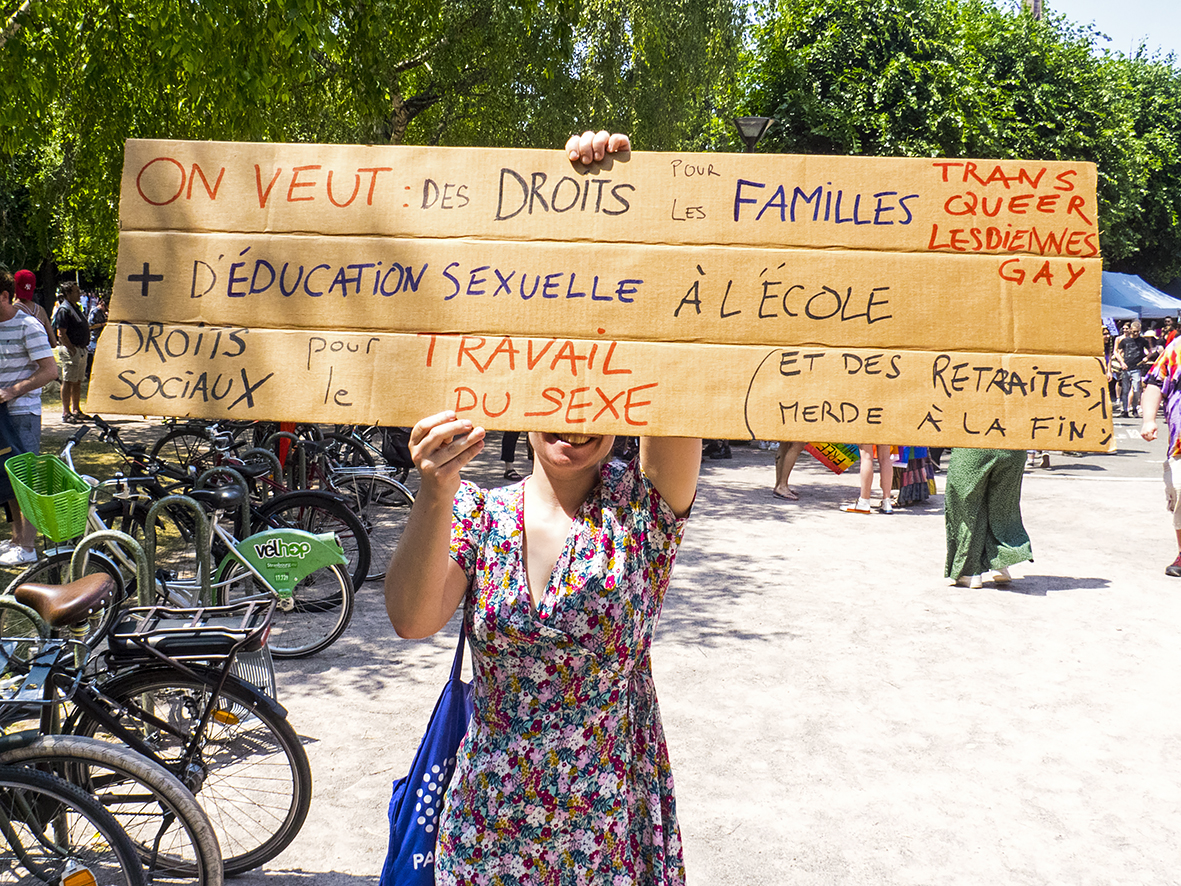 ON VEUT : DES DROITS POUR LES FAMILLES TRANS QUEER LESBIENNES GAY
+ D'ÉDUCATION SEXUELLE À L'ÉCOLE
DROITS SOCIAUX pour le TRAVAIL DU SEXE
(ET DES RETRAITES MERDE À LA FIN!)
vélhop
PA
FREE